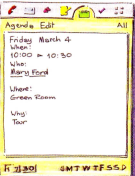 Agenda Edit All
Friday March 4
When:
10:00 ► 10:30
Who:
Mary Ford
Where:
Green Room
Why:
Tour
SMTWTFSSD